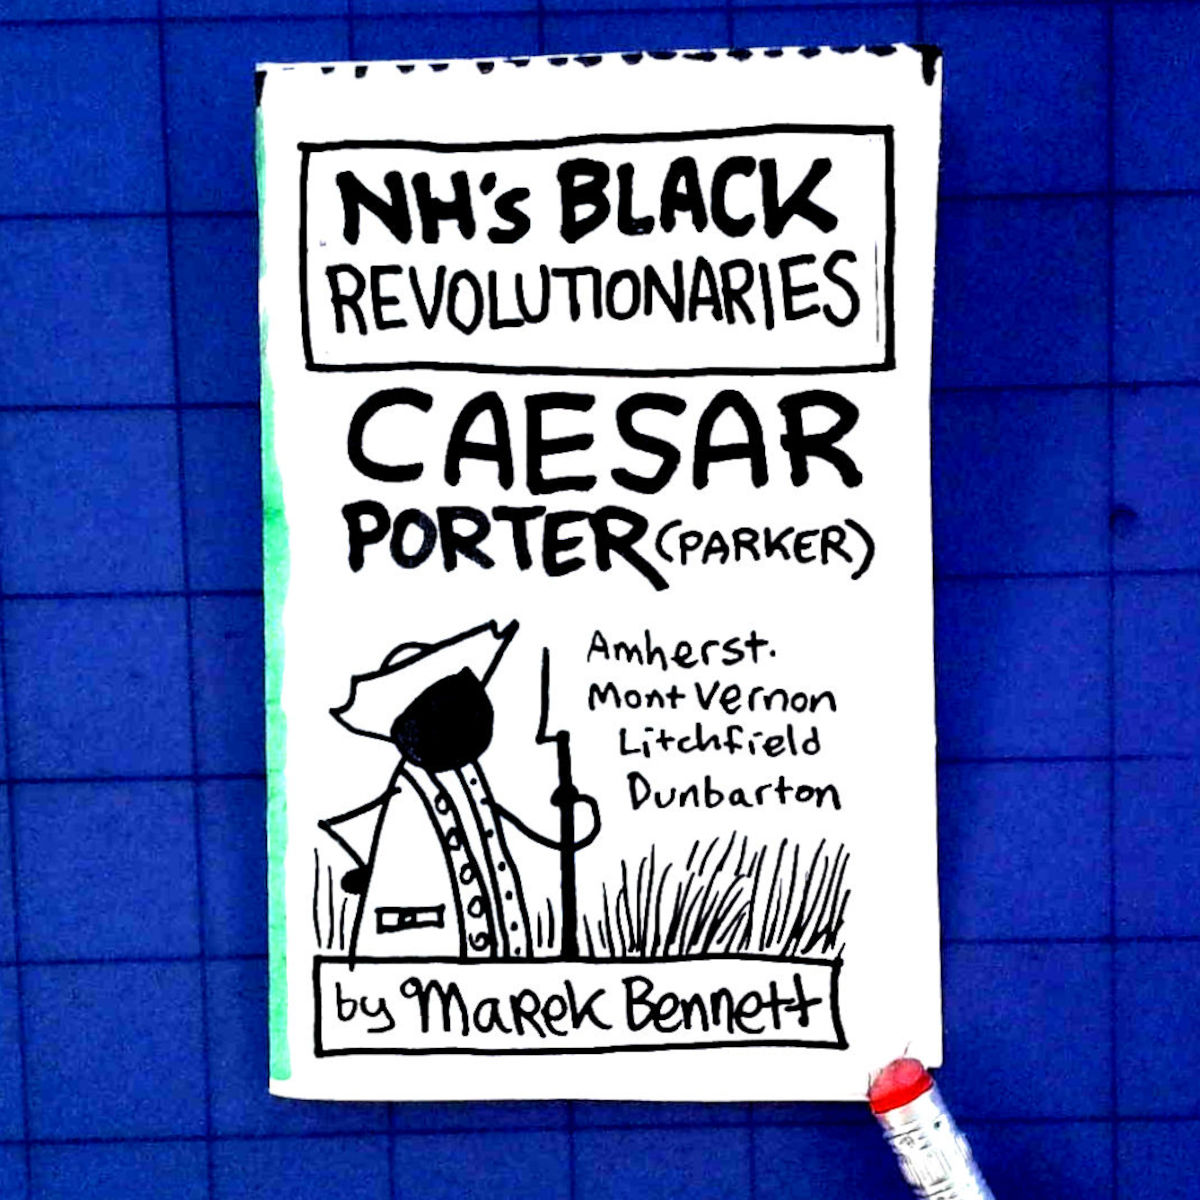 NH's BLACK
REVOLUTIONARIES
CAESAR
PORTER (PARKER)
Amherst.
Mont Vernon
Litchfield
Dunbarton
by Marek Bennett